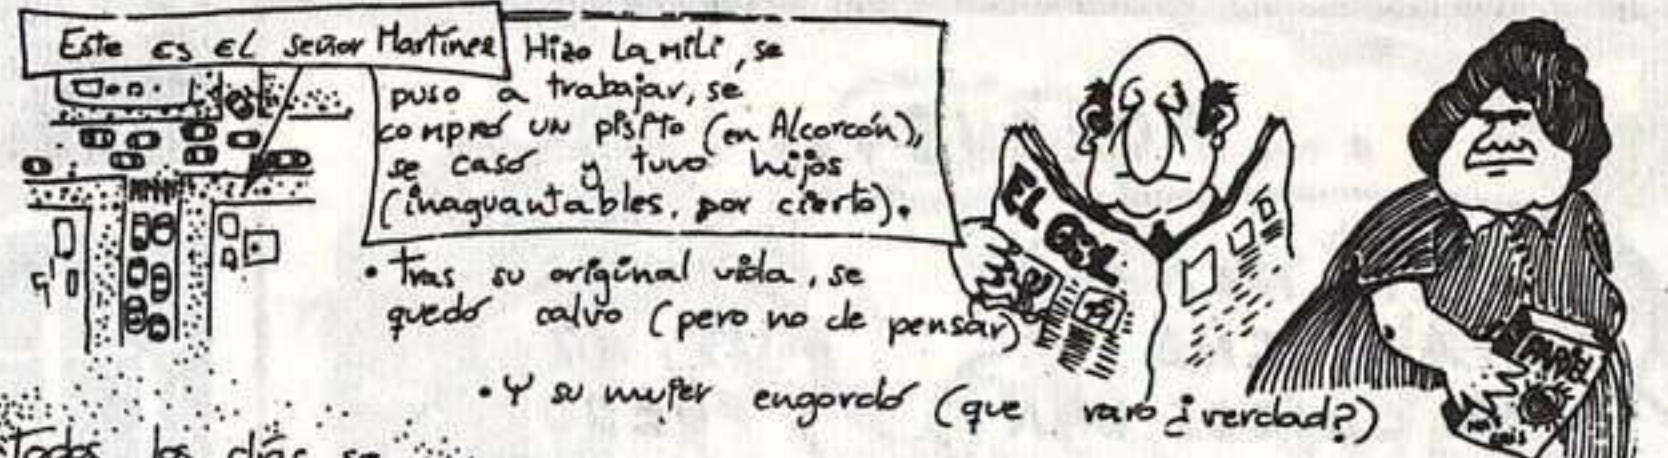 Este es el señor Martínez
Hizo la mili, se
puso a trabajar, se
compró un pisito (en Alcorcón),
se casó y tuvo hijos
(inaguantables, por cierto).
• Tras su original vida, se
quedó calvo (pero no de pensar)
• Y su mujer engordó (que raro ¿verdad?)
EL GOL
PAPEL
Todos los días se